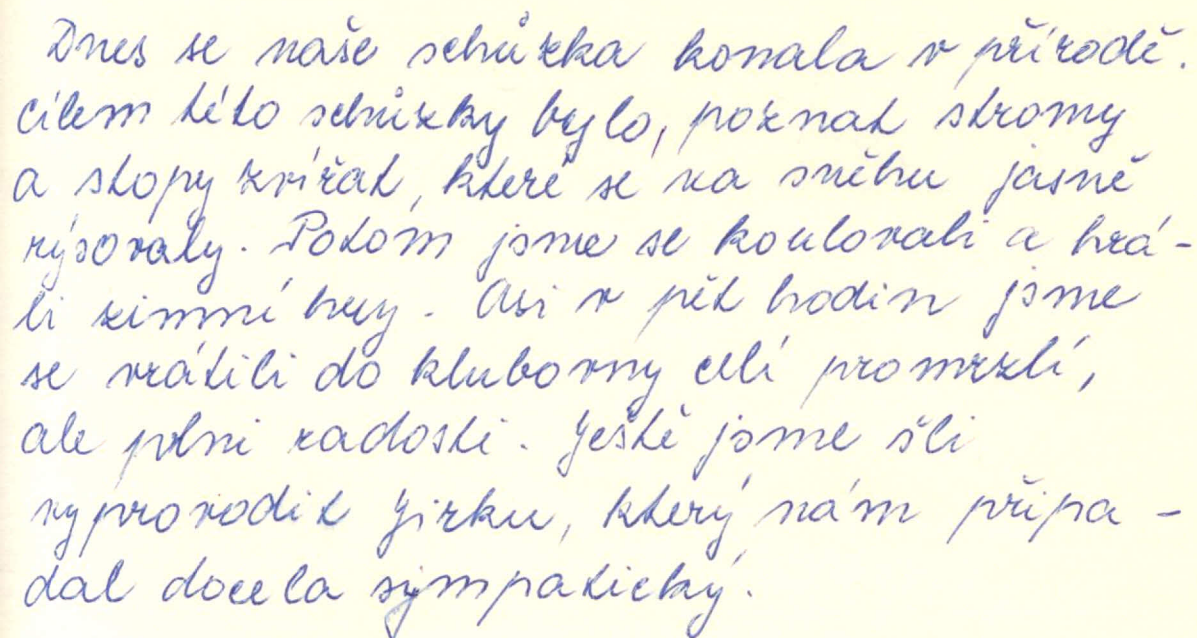 Dnes se naše schůzka konala v přírodě.
Cílem této schůzky bylo, poznat stromy
a stopy zvířat, které se na sněhu jasně
rýsovaly. Potom jsme se koulovali a hrá-
li zimní hry. Asi v pět hodin jsme
se vrátili do klubovny celí promrzlí,
ale plni radosti. Ještě jsme šli
vyprovodit Jirku, který nám připa-
dal docela sympatický.